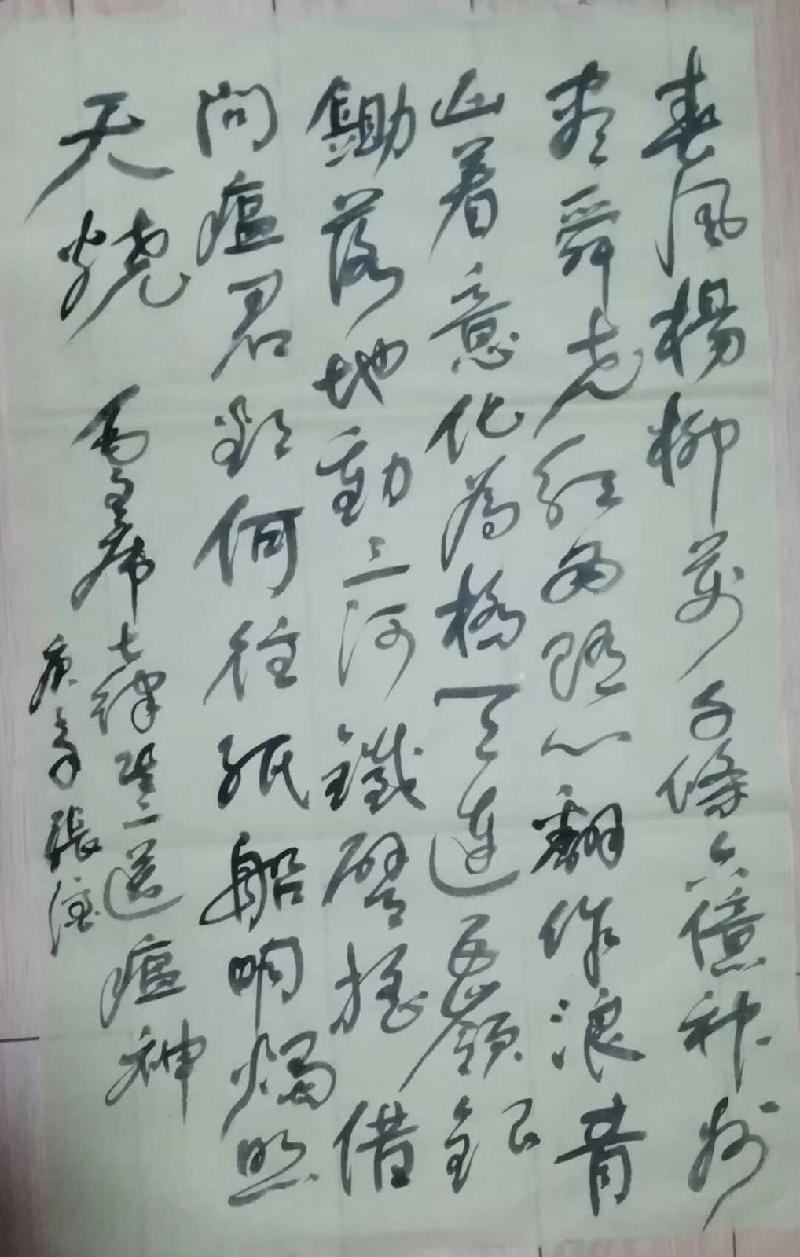 春風楊柳萬千條六億神州
盡舜堯紅雨隨心翻作浪青
山着意化為橋天連五嶺銀
鋤落地動三河鐵臂摇借
問瘟君欲何往紙船明燭照
天燒
毛主席七律其二送瘟神
庚子張